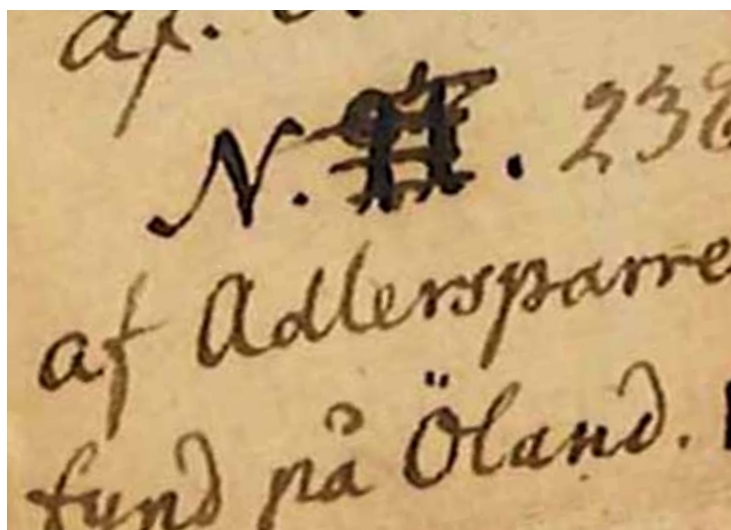 af.
N. . 238
af Adlersparre
fynd på Öland.